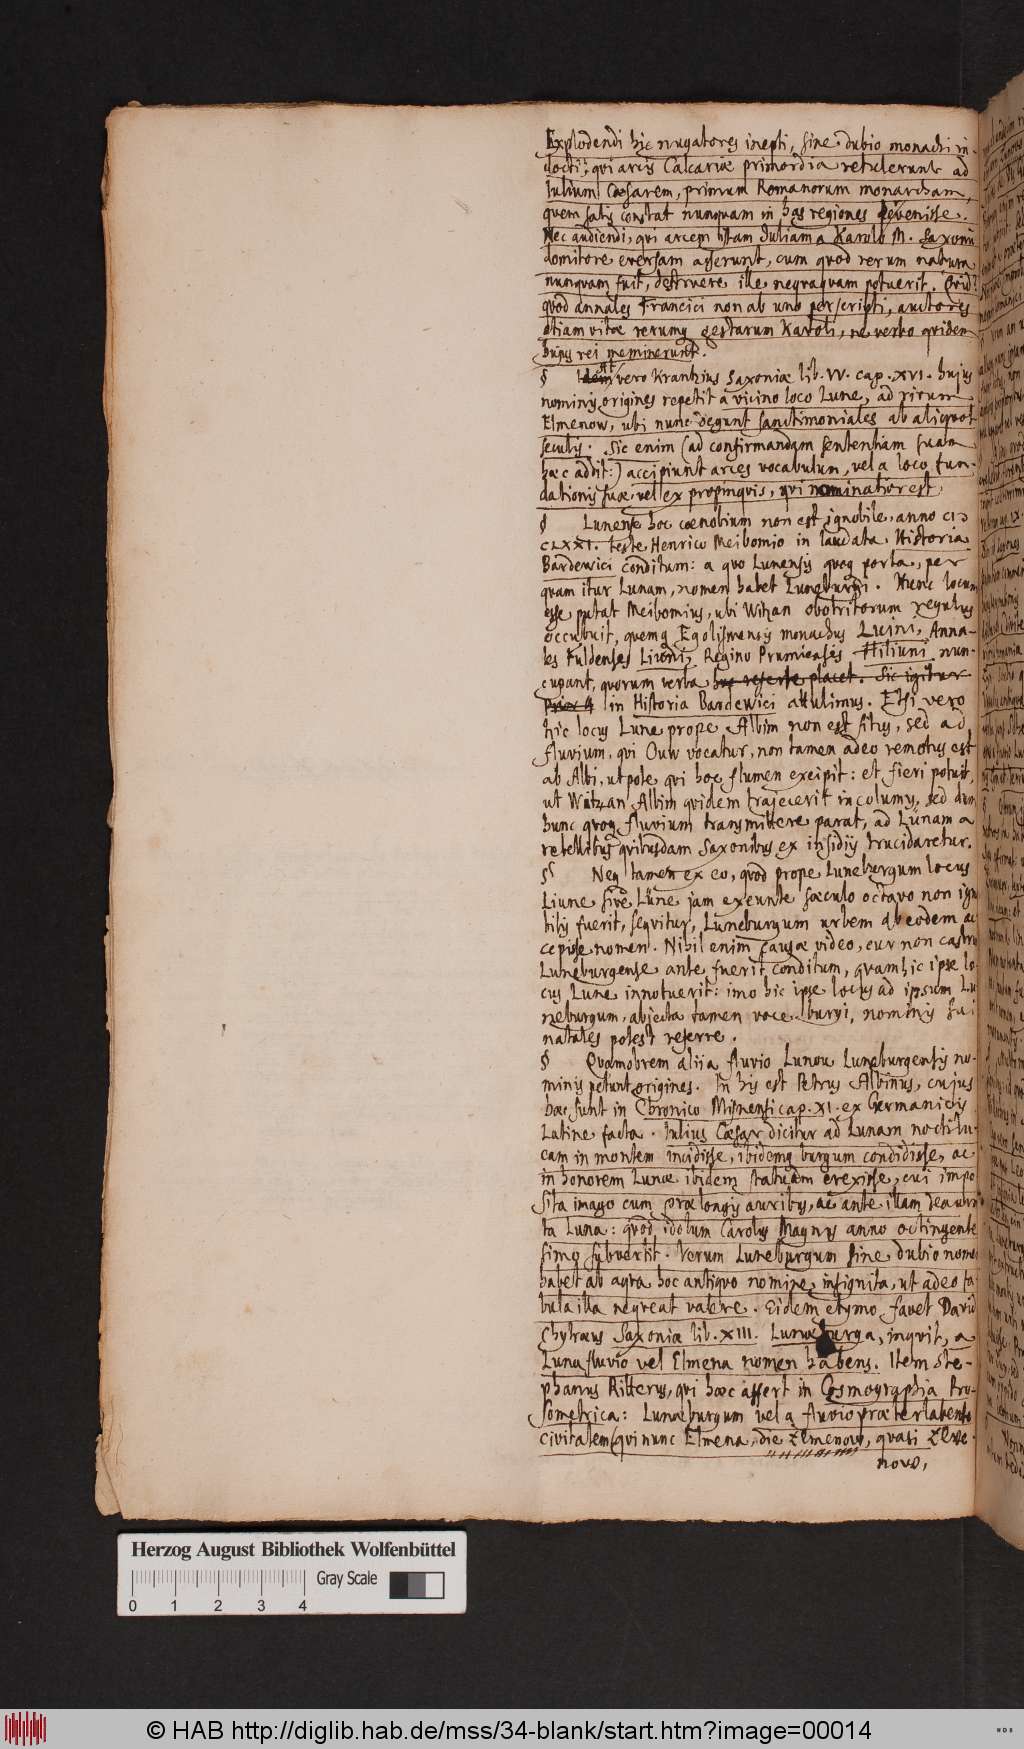 Explodendi hic nugatores inepti, sine dubio monachi in-
docti, qui arcis Calcariæ primordia retulerunt ad
Iulium Cæsarem, primum Romanorum monarcham,
quem satis constat nunquam in has regiones devenisse.
Nec audiendi, qui arcem istam Iuliam a Karolo M. Saxonū
domitore eversam asserunt, cum quod rerum natura
nunquam fuit, destruere ille nequaquam potuerit. Quid?
quod annales Francici non ab uno perscripti, auctores
etiam vitæ rerumq gestarum Karoli, ne verbo quidem
hujus rei meminerunt.
§ vero Krantzius Saxoniæ lib. IV. cap. XVI. hujus
nominis origines repetit a vicino loco Lune, ad rivum
Elmenow, ubi nunc degunt sanctimoniales ab aliquot
seculis. Sic enim (ad confirmandam sententiam suam
hæc addit:) accipiunt arces vocabulum, vel a loco fun-
dationis suæ, vel ex propinquis, qui nominatior est.
§ Lunense hoc cœnobium non est ignobile, anno CIↃ
CLXXI. teste Henrico Meibomio in laudata Historia
Bardewici conditum: a quo Lunensis quoq porta, per
quam itur Lunam, nomen habet Luneburgi. Hunc locum
esse putat Meibomius, ubi Witzan obotritorum regulus
occubuit, quemq Egolismensis monachus Luini, Anna-
les Fuldenses Liuni, Regino Prumiensis Hliuni nun-
cupant, quorum verba huc referre placet. Sic igitur
in Historia Bardewici attulimus. Etsi vero
hic locus Lune prope Albim non est situs, sed ad
fluvium, qui Ouw vocatur, non tamen adeo remotus est
ab Albi, utpote qui hoc flumen excipit: et fieri potuit,
ut Witzan Albim quidem trajecerit incolumis, sed dum
hunc quoq fluvium transmittere parat, ad Lünam a
rebellibus quibusdam Saxonibus ex insidiis trucidaretur.
§ Neq tamen ex eo, quod prope Luneburgum locus
Liune sive Lüne jam exeunte sæculo octavo non igno
bilis fuerit, sequitur, Luneburgum urbem ab eodem ac
cepisse nomen. Nihil enim causæ video, cur non castrū
Luneburgense ante fuerit conditum, quam hic ipse lo-
cus Lune innotuerit: imo hic ipse locus ad ipsum Lu
neburgum, abjecta tamen voce burgi, nominis sui
natales potest referre.
§ Quamobrem alii a fluvio Lunou Luneburgensis no-
minis petunt origines. In his est Petrus Albinus, cujus
hæc sunt in Chronico Misnensi cap. XI. ex Germanicis
Latine facta. Iulius Cæsar dicitur ad Lunam noctilu-
cam in montem incidisse, ibidemq burgum condidisse, ac
in honorem Lunæ ibidem statuam erexisse, cui impo
sita imago cum prælongis auribus, ac ante illam deaura
ta Luna: quod idolum Carolus Magnus anno octingente
simo subvertit. Verum Luneburgum sine dubio nomen
habet ab aqua hoc antiquo nomine insignita, ut adeo fa
bula illa nequeat valere. Eidem etymo favet David
Chytræus Saxoniæ lib. XIII. Lunæburga, inquit, a
Luna fluvio vel Elmena nomen habens. Item Ste-
phanus Ritterus, qui hæc affert in Cosmographia Pro-
sometrica: Lunæburgum vel a fluvio præterlabente
civitatem (qui nunc Elmena, die Elmenow, quasi
now,
Herzog August Bibliothek Wolfenbüttel
Gray Scale
0 1 2 3 4
© HAB http://diglib.hab.de/mss/34-blank/start.htm?image=00014